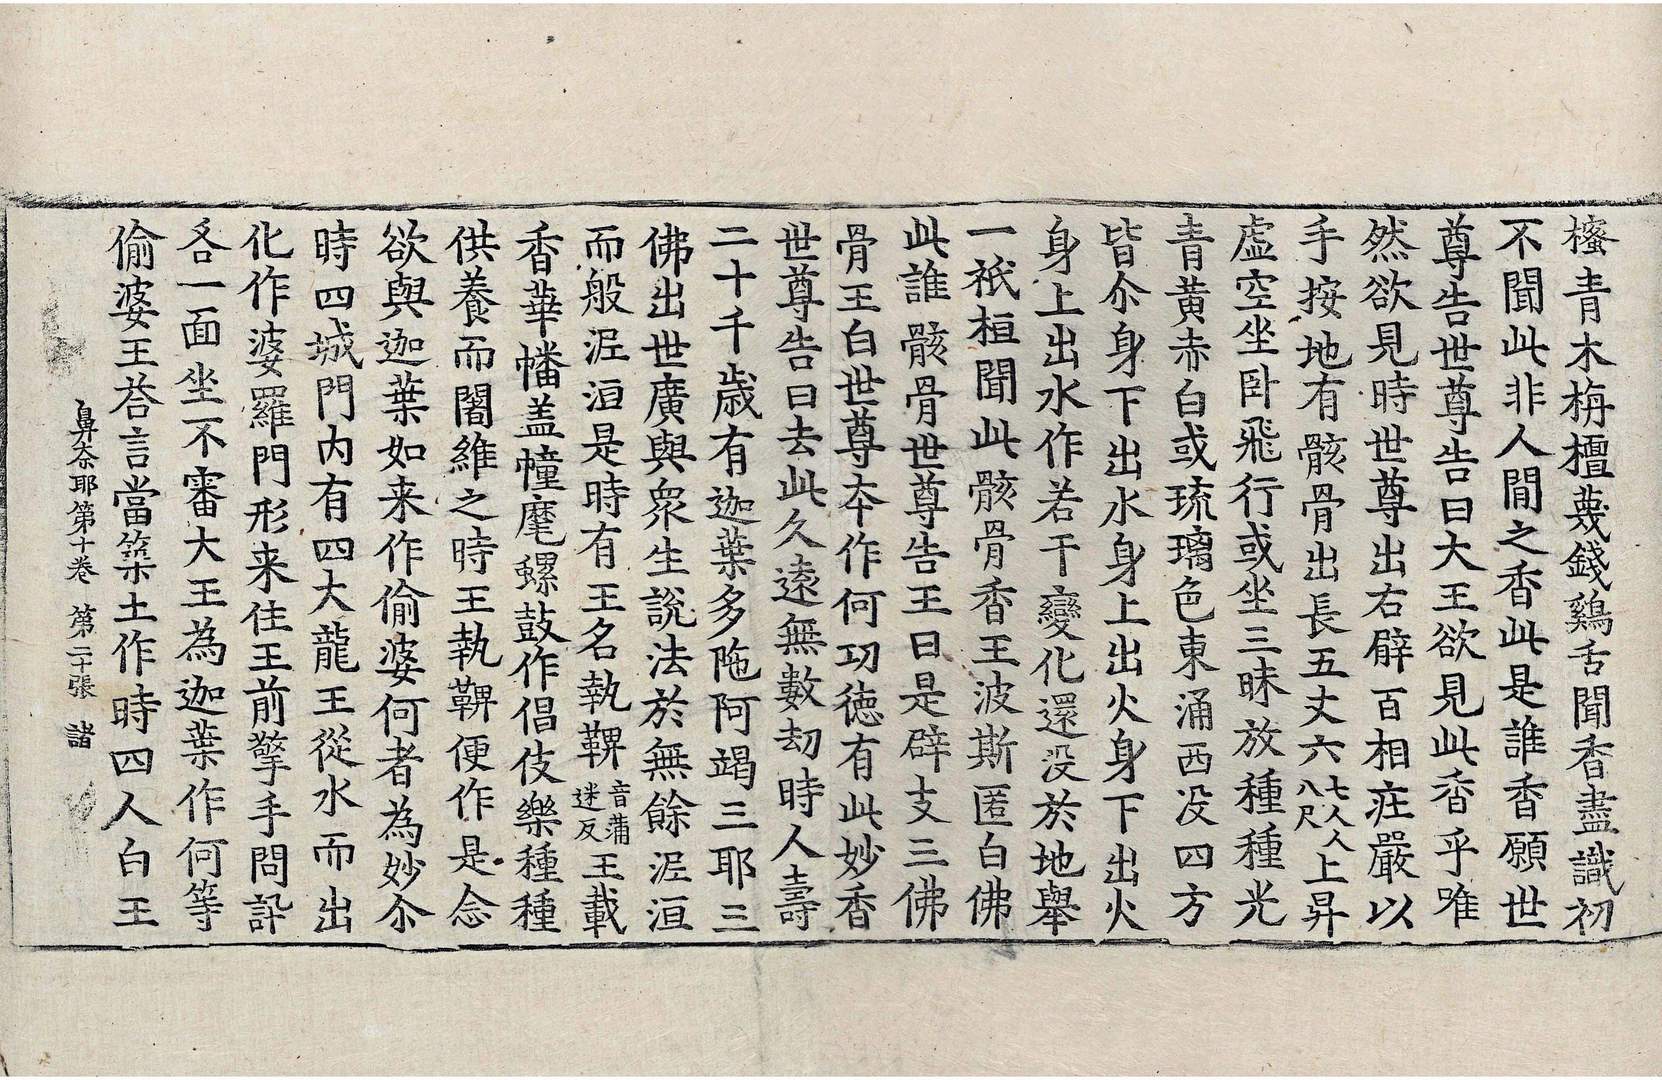 櫁青木栴檀薎錢鷄舌聞香盡識初
不聞此非人閒之香此是誰香願世
尊告世尊告曰大王欲見此香乎唯
然欲見時世尊出右臂百相疘嚴以
手按地有骸骨出長五丈六七人人八尺上昇
虛空坐卧飛行或坐三昧放種種光
青黃赤白或琉璃色東涌西没四方
皆尒身下出水身上出火身下出火
身上出水作若干變化還没於地舉
一祇桓聞此骸骨香王波斯匿白佛
此誰骸骨世尊告王曰是辟支三佛
骨王白世尊本作何功德有此妙香
世尊告曰去此久遠無數劫時人壽
二十千歲有迦葉多陁阿竭三耶三
佛出世廣與衆生說法於無餘泥洹
而般泥洹是時有王名執鞞音蒲迷反王載
香華幡盖幢麾螺鼓作倡伎樂種種
供養而闍維之時王執鞞便作是念
欲與迦葉如来作偷婆何者為妙尒
時四城門內有四大龍王從水而出
化作婆羅門形来住王前擎手問訊
各一面坐不審大王為迦葉作何等
偷婆王荅言當築土作時四人白王
鼻奈耶第十卷　第二十張　諸